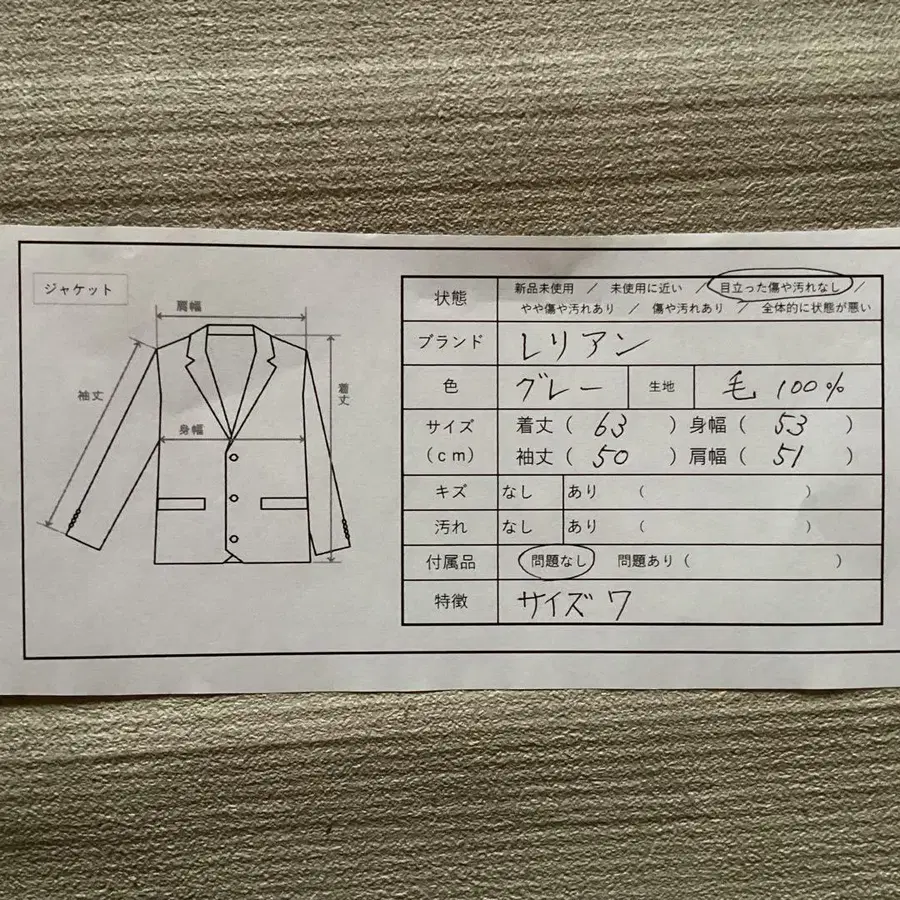 ジャケット
肩幅
袖丈
着丈
身幅
状態 新品未使用 / 未使用に近い / 目立った傷や汚れなし /
やや傷や汚れあり / 傷や汚れあり / 全体的に状態が悪い
ブランド レリアン
色 グレー 生地 毛 100%
サイズ 着丈 ( 63 ) 身幅 ( 53 )
(cm) 袖丈 ( 50 ) 肩幅 ( 51 )
キズ なし あり ( )
汚れ なし あり ( )
付属品 問題なし 問題あり ( )
特徴 サイズ 7